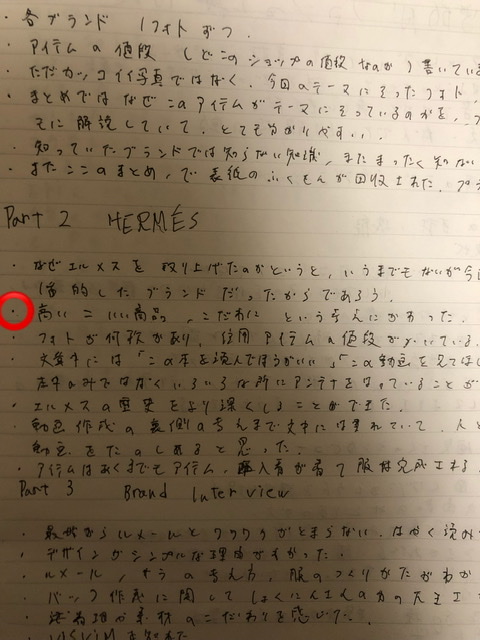 各ブランド 1フォトずつ.
・アイテムの値段(どこのショップの値段なのか)書いている
・ただカッコイイ写真ではなく、今回のテーマにそったフォト.
・まとめではなぜこのアイテムがテーマにそっているのかを、
もに解説していて、とても分かりやすい.
・知っていたブランドでは知らない知識、またまったく知ない
・またここのまとめ、で表紙のふくせんが回収された.
Part 2 HERMÉS
・なぜエルメスを取り上げたのかというと、いうまでもないが今
的したブランドだったからであろう.
・高い=いい商品、こだわに という考えにかわった.
・フォトが何枚かあり、アイテムの値段がかいている.
・文章中には「この本を読んでほうがいい」「この動画を見てほし
のみではなくいろいろな所にアンテナをはっていることが
・エルメスの歴史をより深くしることができた.
・動画作成の裏側の考えまで文中には書れていて、人と
動画をたのしめると思った.
・アイテムはあくまでもアイテム、購入者が着て服は完成される.
Part 3 Brand Interview
・最初からルメールとワクワクがとまらない. はやく読み
・デザインがシンプルな理由がわかった.
・ルメール、の考え方、服のつくりかたがわか
・バッグ作成に関してしょくにんさんの力の大
素材のこだわりを感じた.
を知れた